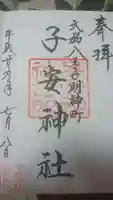 奉拝
武蔵八王子明神町
子安神社
平成廿六年
七月八日